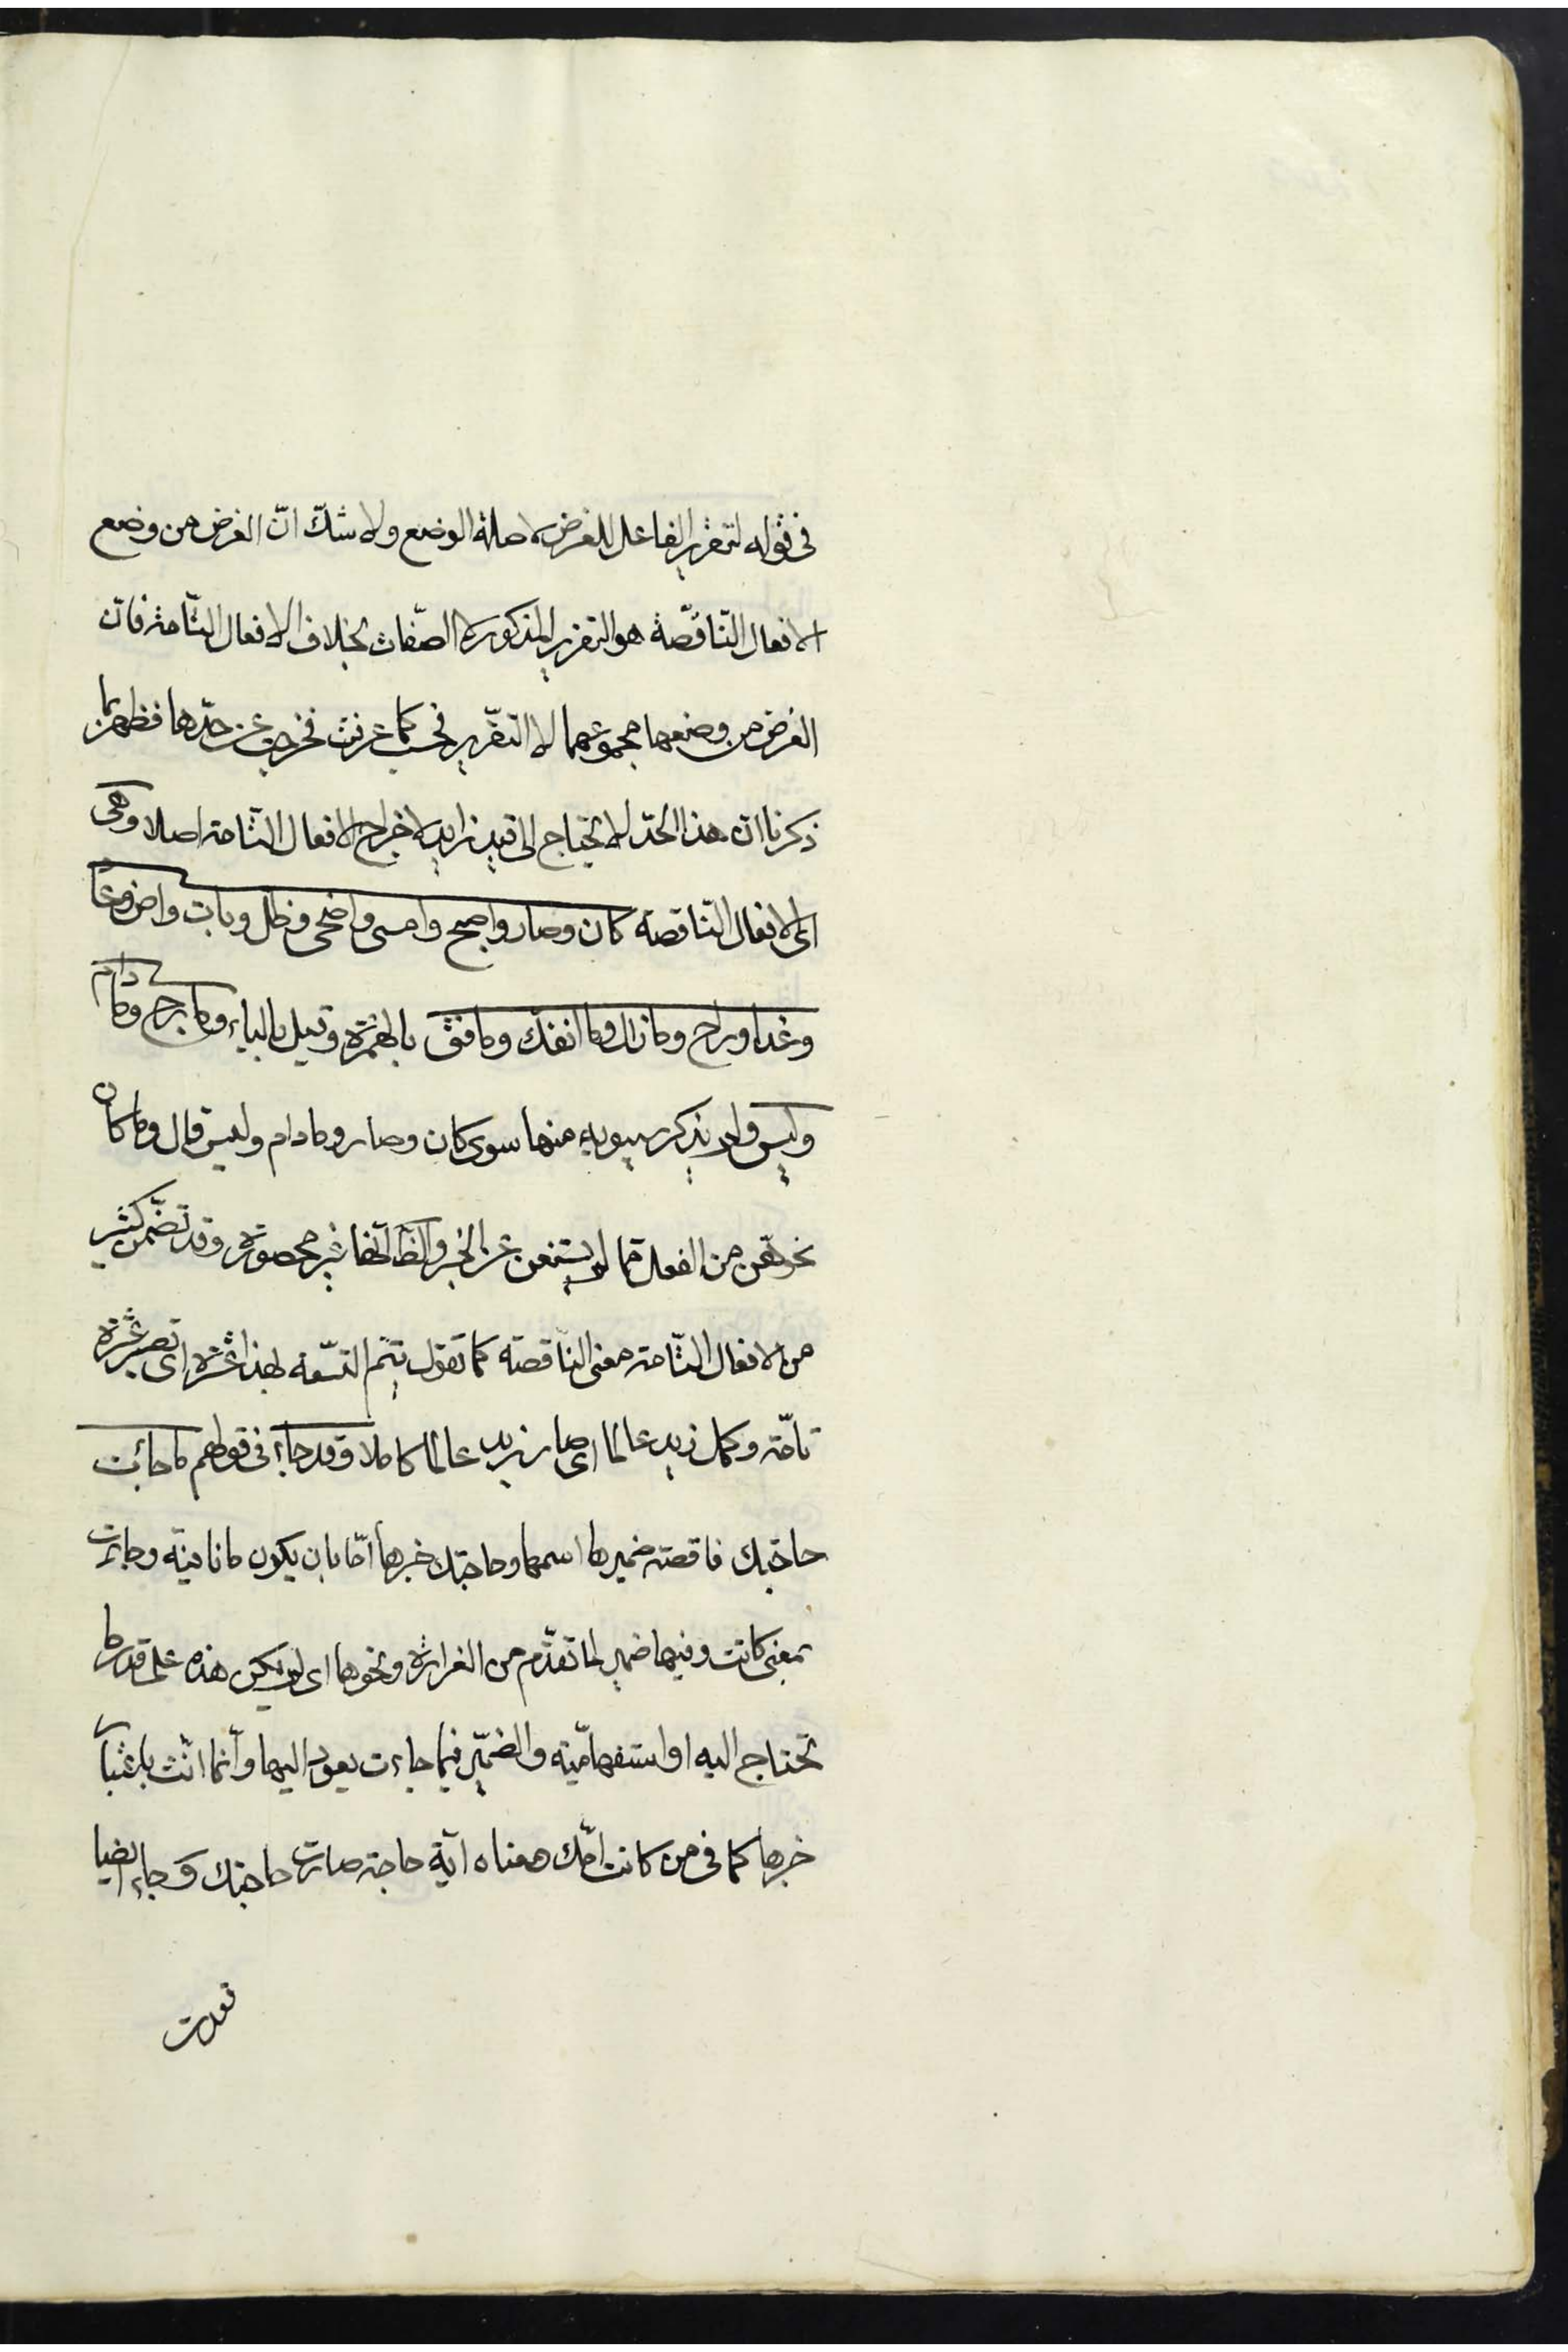 فى قوله لتقرير الفاعل للغرض لا صلة الوضع ولا شك انّ الغرض من وضع
الافعال النّاقصة هو التقرير المذكور لا الصّفات بخلاف الافعال التّامة فان
الغرض من وضعها مجموعهما لا التقرير فحسب كما عرفت فخرجت عن حدّها فظهر بما
ذكرنا ان هذا الحدّ لا يحتاج الى قيد زايد لاخراج الافعال التّامة اصلا وهى
اى الافعال النّاقصة كان وصار واصبح وامسى واضحى وظل وبات واض وعاد
وغدا وراح وما زال وما انفك وما فتئ بالهمزة وقيل بالياء وما برح وما دام
وليس ولم يذكر سيبويه منها سوى كان وصار وما دام وليس قال وما كان
نحوهن من الفعل مما لا يستغنى عن الخبر والظ انها غير محصورة وقد تضمن كثير
من الافعال التّامة معنى النّاقصة كما تقول تتم التسعة بهذا عشرة اى تصير عشرة
تامّة وكمل زيد عالما اى صار زيد عالما كاملا وقد جاء فى قولهم ما جائت
حاجتك ناقصة ضميرها اسمها وحاجتك خبرها امّا بان يكون ما نافية وجاءت
بمعنى كانت وفيها ضمير لما تقدّم من الغرارة ونحوها اى لم يكن هذه على قدر ما
تحتاج اليه او استفهاميّة والضّمير فيما جاءت يعود اليها وانّما انّث باعتبار
خبرها كما فى من كانت امّك معناه ايّة حاجة صارت حاجتك وجاء ايضا
قعدت